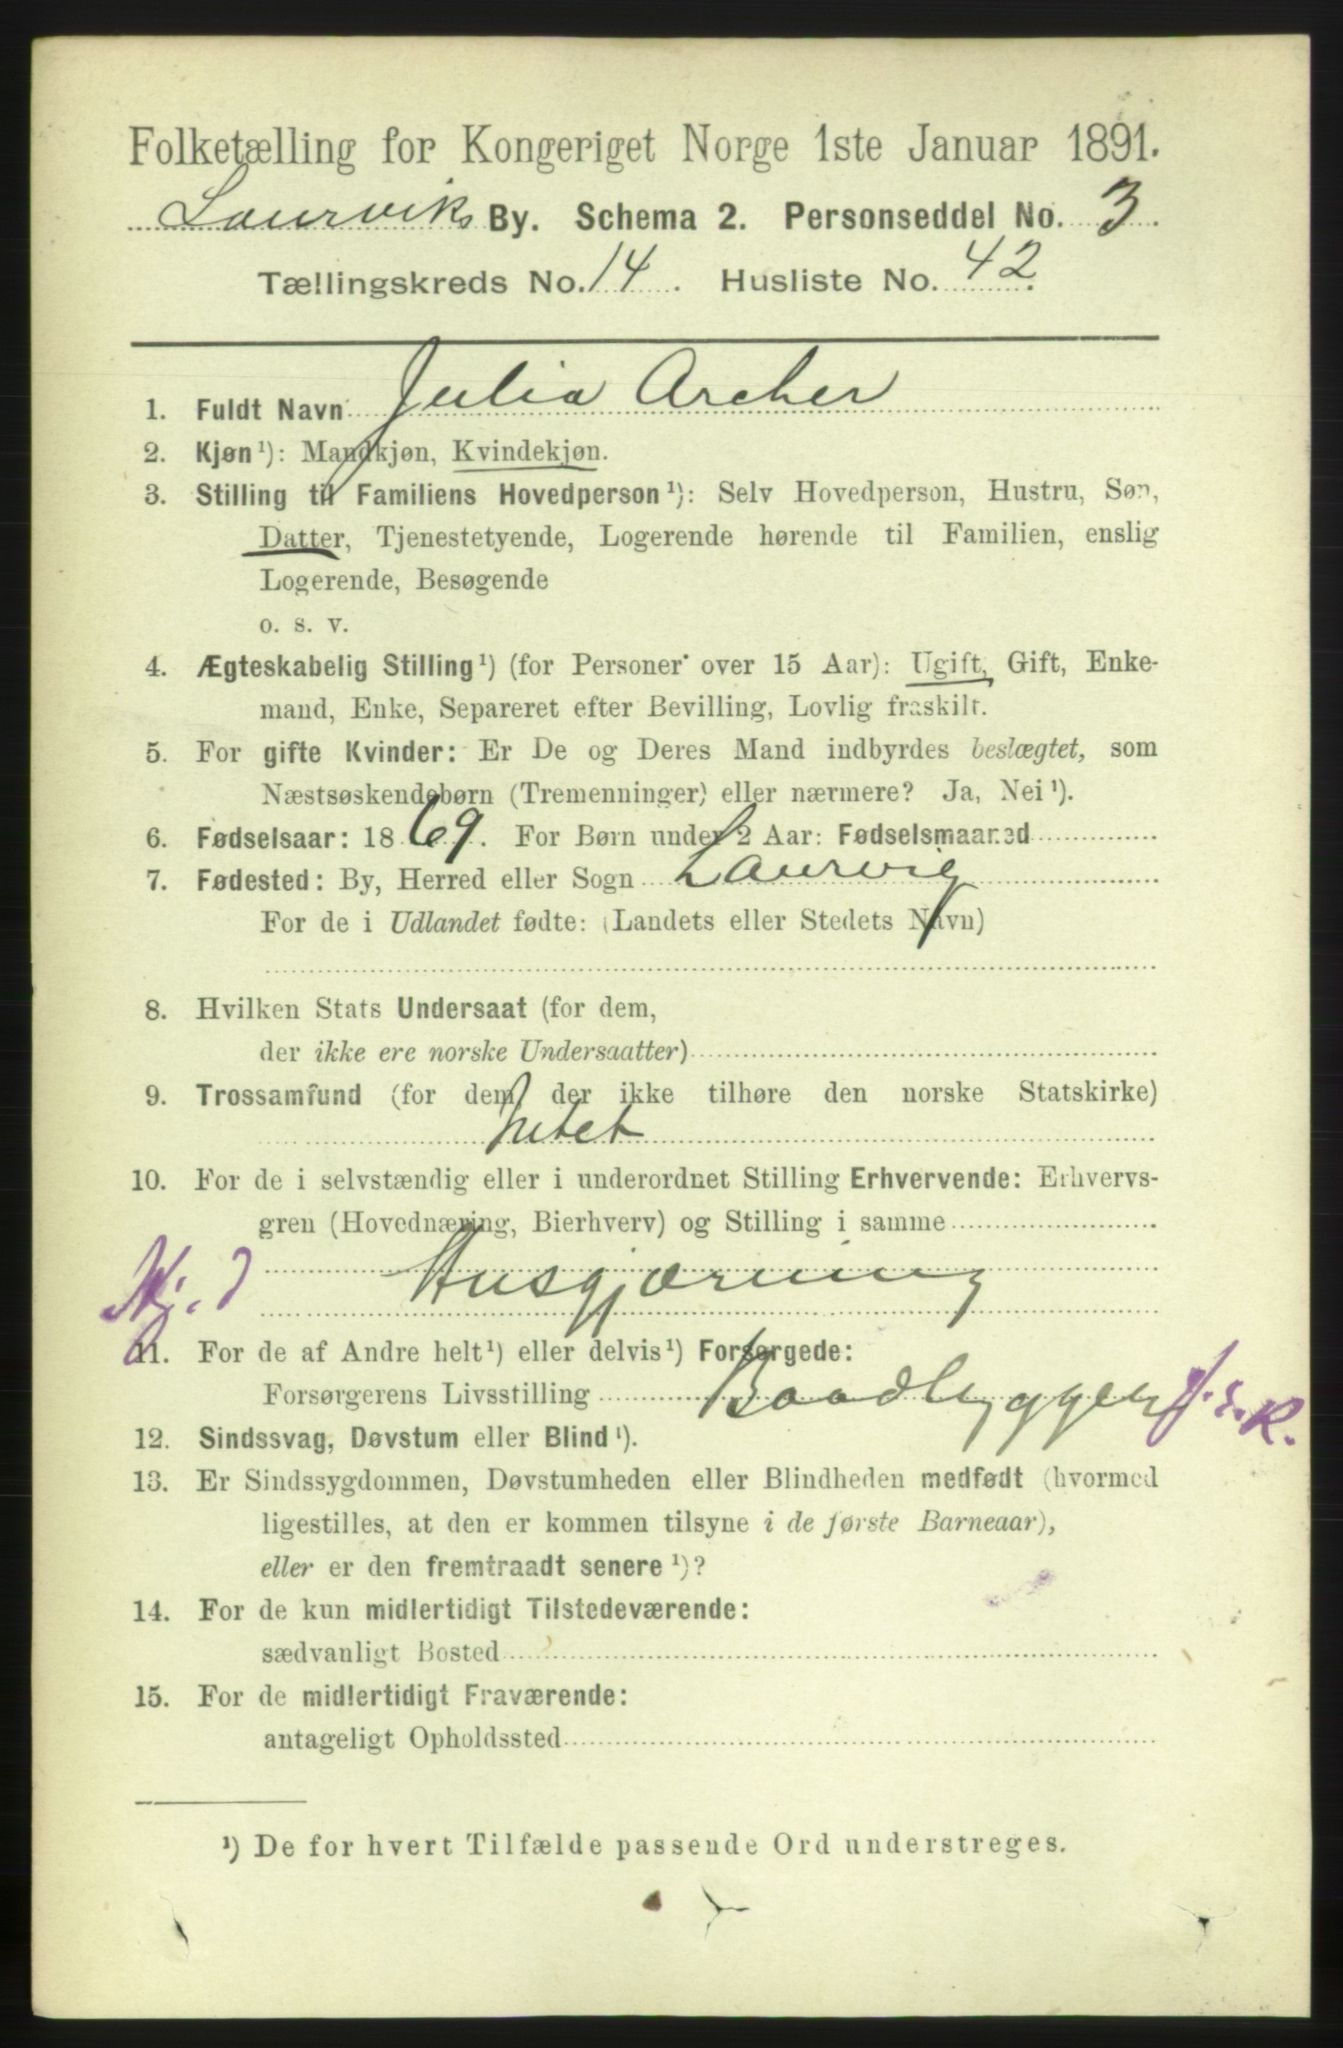 Folketælling for Kongeriget Norge 1ste Januar 1891.
Laurviks By. Schema 2. Personseddel No. 3.
Tællingskreds No. 14. Husliste No. 42.
1. Fuldt Navn Julia Archer
2. Kjøn¹): Mandkjøn, Kvindekjøn.
3. Stilling til Familiens Hovedperson¹): Selv Hovedperson, Hustru, Søn,
Datter, Tjenestetyende, Logerende hørende til Familien, enslig
Logerende, Besøgende
o. s. v.
4. Ægteskabelig Stilling¹) (for Personer over 15 Aar): Ugift, Gift, Enke-
mand, Enke, Separeret efter Bevilling, Lovlig fraskilt.
5. For gifte Kvinder: Er De og Deres Mand indbyrdes beslægtet, som
Næstsøskendebørn (Tremenninger) eller nærmere? Ja, Nei¹).
6. Fødselsaar: 1869. For Børn under 2 Aar: Fødselsmaaned
7. Fødested: By, Herred eller Sogn Laurvig
For de i Udlandet fødte: (Landets eller Stedets Navn)
8. Hvilken Stats Undersaat (for dem,
der ikke ere norske Undersaatter)
9. Trossamfund (for dem, der ikke tilhøre den norske Statskirke)
Intet
10. For de i selvstændig eller i underordnet Stilling Erhvervende: Erhvervs-
gren (Hovednæring, Bierhverv) og Stilling i samme
Husgjærning
11. For de af Andre helt¹) eller delvis¹) Forsørgede:
Forsørgerens Livsstilling Baadbygger f.s.R.
12. Sindssvag, Døvstum eller Blind¹).
13. Er Sindssygdommen, Døvstumheden eller Blindheden medfødt (hvormed
ligestilles, at den er kommen tilsyne i de første Barneaar),
eller er den fremtraadt senere¹)?
14. For de kun midlertidigt Tilstedeværende:
sædvanligt Bosted
15. For de midlertidigt Fraværende:
antageligt Opholdssted
¹) De for hvert Tilfælde passende Ord understreges.